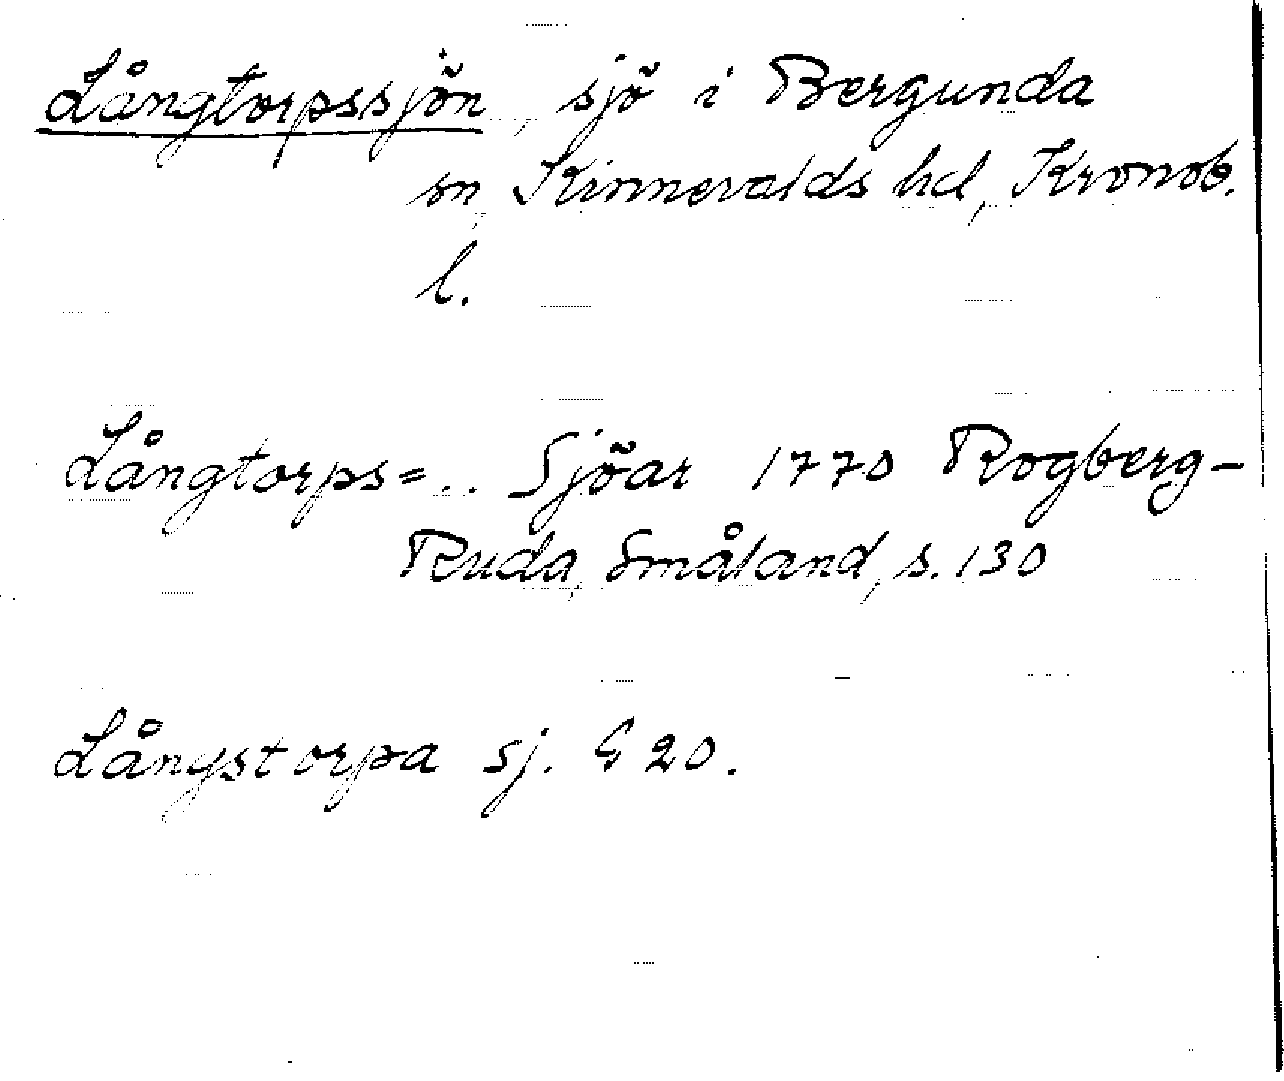 Långtorpssjön, sjö i Bergunda
sn, Kinnevalds hd, Kronob.
l.
Långtorps= .. Sjöar 1770 Rogberg-
Ruda, Småland, s. 130
Långstorpa sj. G 20.